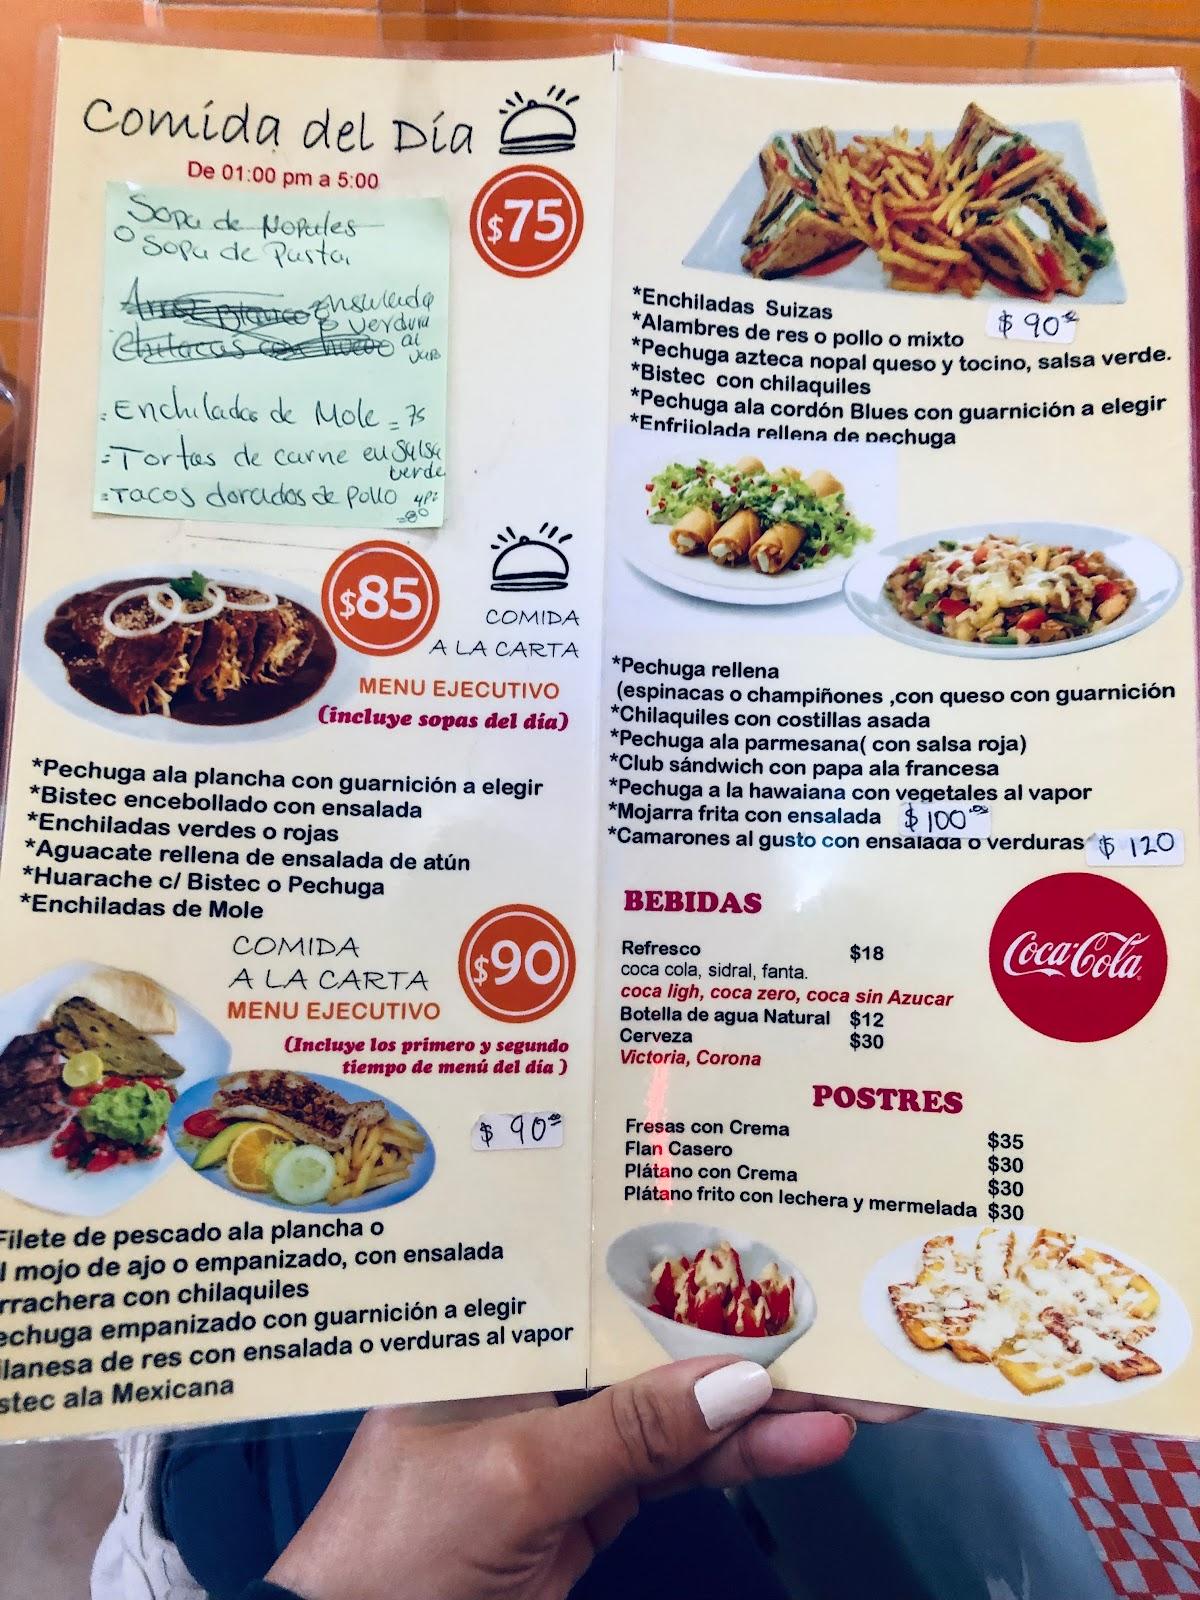 Comida del Día
De 01:00 pm a 5:00
$75
Sopa de Nopales
o Sopa de Pasta
ensalada
o verdura
al
= Enchiladas de Mole = 75
= Tortas de carne en Salsa
verde
= Tacos dorados de pollo
$85
COMIDA
A LA CARTA
MENU EJECUTIVO
(incluye sopas del día)
*Pechuga ala plancha con guarnición a elegir
*Bistec encebollado con ensalada
*Enchiladas verdes o rojas
*Aguacate rellena de ensalada de atún
*Huarache c/ Bistec o Pechuga
*Enchiladas de Mole
COMIDA
A LA CARTA
MENU EJECUTIVO
$90
(Incluye los primero y segundo
tiempo de menú del día )
$ 90.00
Filete de pescado ala plancha o
l mojo de ajo o empanizado, con ensalada
rrachera con chilaquiles
echuga empanizado con guarnición a elegir
ilanesa de res con ensalada o verduras al vapor
stec ala Mexicana
*Enchiladas Suizas
*Alambres de res o pollo o mixto
$ 90.00
*Pechuga azteca nopal queso y tocino, salsa verde.
*Bistec con chilaquiles
*Pechuga ala cordón Blues con guarnición a elegir
*Enfrijolada rellena de pechuga
*Pechuga rellena
(espinacas o champiñones ,con queso con guarnición
*Chilaquiles con costillas asada
*Pechuga ala parmesana( con salsa roja)
*Club sándwich con papa ala francesa
*Pechuga a la hawaiana con vegetales al vapor
*Mojarra frita con ensalada $ 100.00
*Camarones al gusto con ensalada o verduras $ 120
BEBIDAS
Refresco $18
coca cola, sidral, fanta.
coca ligh, coca zero, coca sin Azucar
Botella de agua Natural $12
Cerveza $30
Victoria, Corona
Coca-Cola
POSTRES
Fresas con Crema $35
Flan Casero $30
Plátano con Crema $30
Plátano frito con lechera y mermelada $30